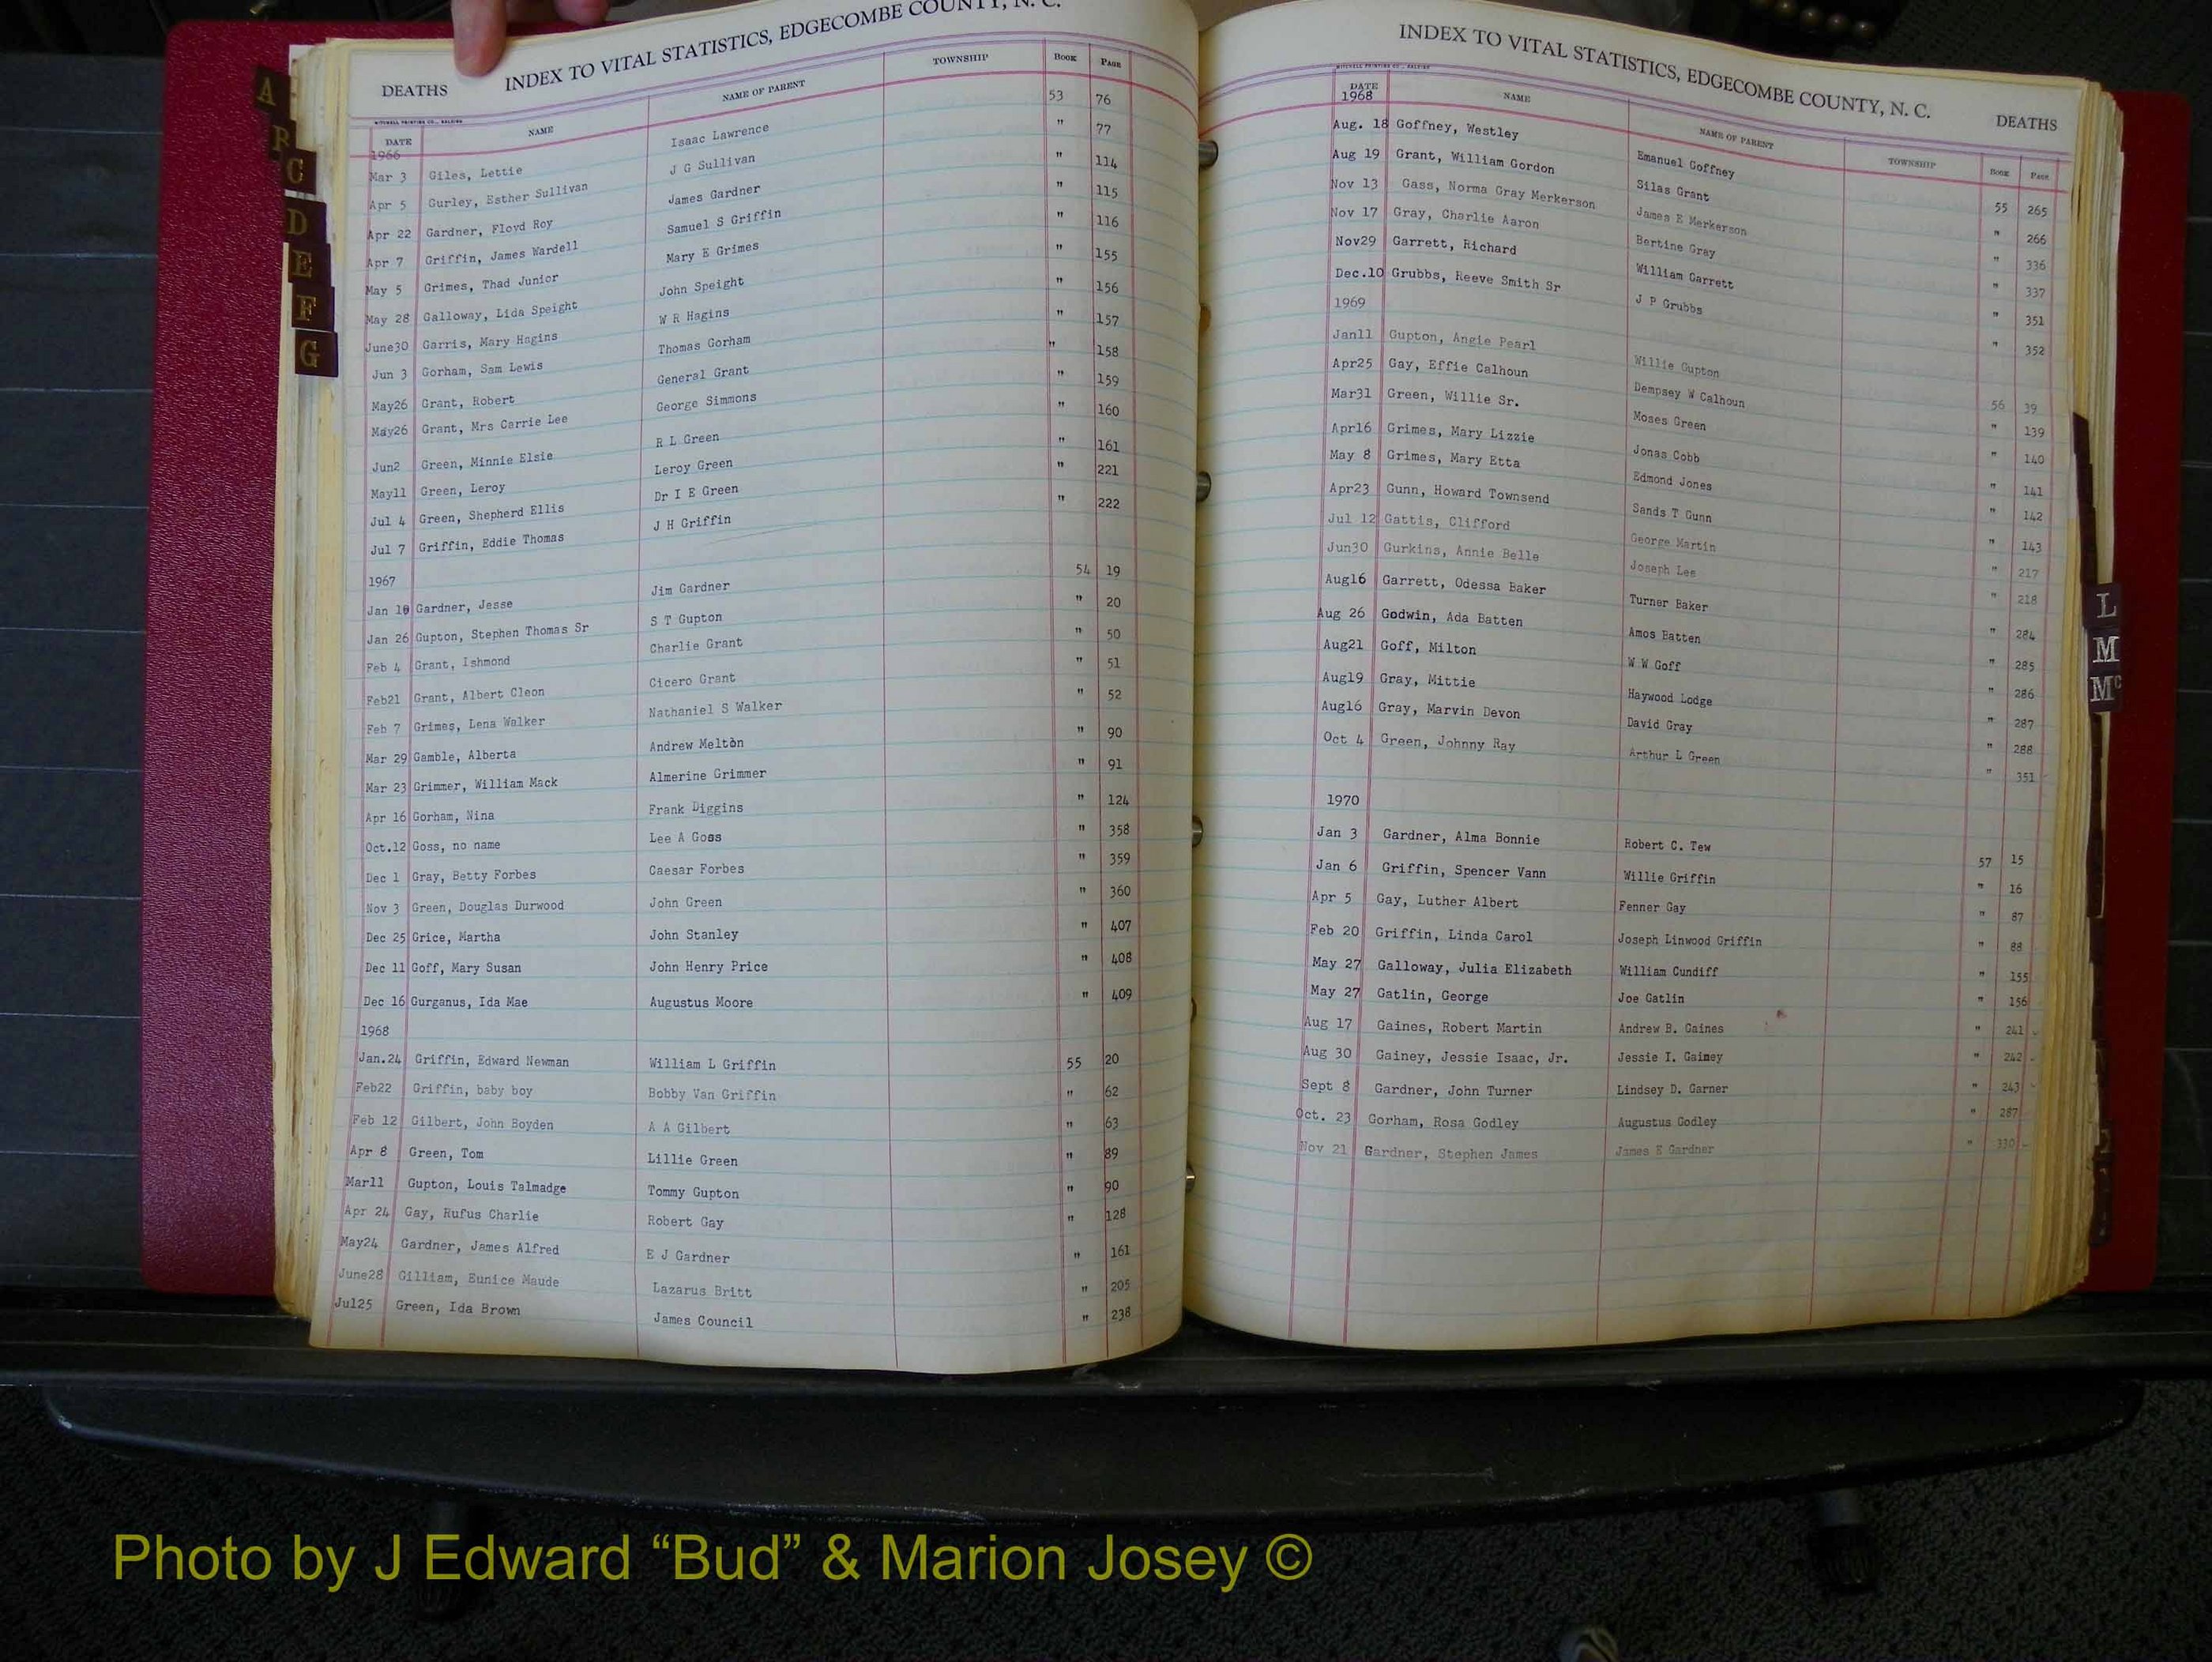 A
B
C
D
E
F
G
DEATHS INDEX TO VITAL STATISTICS, EDGECOMBE COUNTY, N. C.
MITCHELL PRINTING CO., RALEIGH
DATE NAME NAME OF PARENT TOWNSHIP BOOK PAGE
1966
Mar 3 Giles, Lettie Isaac Lawrence 53 76
Apr 5 Gurley, Esther Sullivan J G Sullivan " 77
Apr 22 Gardner, Floyd Roy James Gardner " 114
Apr 7 Griffin, James Wardell Samuel S Griffin " 115
May 5 Grimes, Thad Junior Mary E Grimes " 116
May 28 Galloway, Lida Speight John Speight " 155
June30 Garris, Mary Hagins W R Hagins " 156
Jun 3 Gorham, Sam Lewis Thomas Gorham " 157
May26 Grant, Robert General Grant " 158
May26 Grant, Mrs Carrie Lee George Simmons " 159
Jun2 Green, Minnie Elsie R L Green " 160
May11 Green, Leroy Leroy Green " 161
Jul 4 Green, Shepherd Ellis Dr I E Green " 221
Jul 7 Griffin, Eddie Thomas J H Griffin " 222
1967
Jan 10 Gardner, Jesse Jim Gardner 54 19
Jan 26 Gupton, Stephen Thomas Sr S T Gupton " 20
Feb 4 Grant, Ishmond Charlie Grant " 50
Feb21 Grant, Albert Cleon Cicero Grant " 51
Feb 7 Grimes, Lena Walker Nathaniel S Walker " 52
Mar 29 Gamble, Alberta Andrew Melton " 90
Mar 23 Grimmer, William Mack Almerine Grimmer " 91
Apr 16 Gorham, Nina Frank Diggins " 124
Oct.12 Goss, no name Lee A Goss " 358
Dec 1 Gray, Betty Forbes Caesar Forbes " 359
Nov 3 Green, Douglas Durwood John Green " 360
Dec 25 Grice, Martha John Stanley " 407
Dec 11 Goff, Mary Susan John Henry Price " 408
Dec 16 Gurganus, Ida Mae Augustus Moore " 409
1968
Jan.24 Griffin, Edward Newman William L Griffin 55 20
Feb22 Griffin, baby boy Bobby Van Griffin " 62
Feb 12 Gilbert, John Boyden A A Gilbert " 63
Apr 8 Green, Tom Lillie Green " 89
Mar11 Gupton, Louis Talmadge Tommy Gupton " 90
Apr 24 Gay, Rufus Charlie Robert Gay " 128
May24 Gardner, James Alfred E J Gardner " 161
June28 Gilliam, Eunice Maude Lazarus Britt " 205
Jul25 Green, Ida Brown James Council " 238
INDEX TO VITAL STATISTICS, EDGECOMBE COUNTY, N. C. DEATHS
MITCHELL PRINTING CO., RALEIGH
DATE NAME NAME OF PARENT TOWNSHIP BOOK PAGE
1968
Aug. 18 Goffney, Westley Emanuel Goffney 55 265
Aug 19 Grant, William Gordon Silas Grant " 266
Nov 13 Gass, Norma Gray Merkerson James E Merkerson " 336
Nov 17 Gray, Charlie Aaron Bertine Gray " 337
Nov29 Garrett, Richard William Garrett " 351
Dec.10 Grubbs, Reeve Smith Sr J P Grubbs " 352
1969
Jan11 Gupton, Angie Pearl Willie Gupton 56 39
Apr25 Gay, Effie Calhoun Dempsey W Calhoun " 139
Mar31 Green, Willie Sr. Moses Green " 140
Apr16 Grimes, Mary Lizzie Jonas Cobb " 141
May 8 Grimes, Mary Etta Edmond Jones " 142
Apr23 Gunn, Howard Townsend Sands T Gunn " 143
Jul 12 Gattis, Clifford George Martin " 217
Jun30 Gurkins, Annie Belle Joseph Lee " 218
Aug16 Garrett, Odessa Baker Turner Baker " 284
Aug 26 Godwin, Ada Batten Amos Batten " 285
Aug21 Goff, Milton W W Goff " 286
Aug19 Gray, Mittie Haywood Lodge " 287
Aug16 Gray, Marvin Devon David Gray " 288
Oct 4 Green, Johnny Ray Arthur L Green " 351
1970
Jan 3 Gardner, Alma Bonnie Robert C. Tew 57 15
Jan 6 Griffin, Spencer Vann Willie Griffin " 16
Apr 5 Gay, Luther Albert Fenner Gay " 87
Feb 20 Griffin, Linda Carol Joseph Linwood Griffin " 88
May 27 Galloway, Julia Elizabeth William Cundiff " 155
May 27 Gatlin, George Joe Gatlin " 156
Aug 17 Gaines, Robert Martin Andrew B. Gaines " 241
Aug 30 Gainey, Jessie Isaac, Jr. Jessie I. Gainey " 242
Sept 8 Gardner, John Turner Lindsey D. Garner " 243
Oct. 23 Gorham, Rosa Godley Augustus Godley " 287
Nov 21 Gardner, Stephen James James E Gardner " 330
L
M
Mc
Photo by J Edward “Bud” & Marion Josey ©